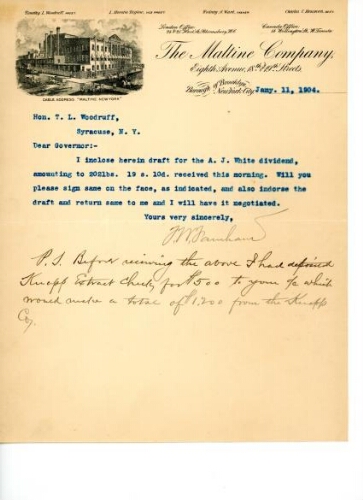 Timothy L. Woodruff,
London Office
Canada Office
The Maltine Company,
Eighth Avenue, 18th & 19th Streets,
Borough of Brooklyn
New York City
CABLE ADDRESS "MALTINE NEW YORK"
Jany. 11, 1904.
Hon. T. L. Woodruff,
Syracuse, N. Y.
Dear Governor:-
I inclose herein draft for the A. J. White dividend,
amounting to 202lbs. 19 s. 10d. received this morning. Will you
please sign same on the face, as indicated, and also indorse the
draft and return same to me and I will have it negotiated.
Yours very sincerely,
P.S. Before receiving the above I had deposited
Knapp Extract Check for $500 to your a/c which
would make a total of $1,200 from the Knapp
Co.